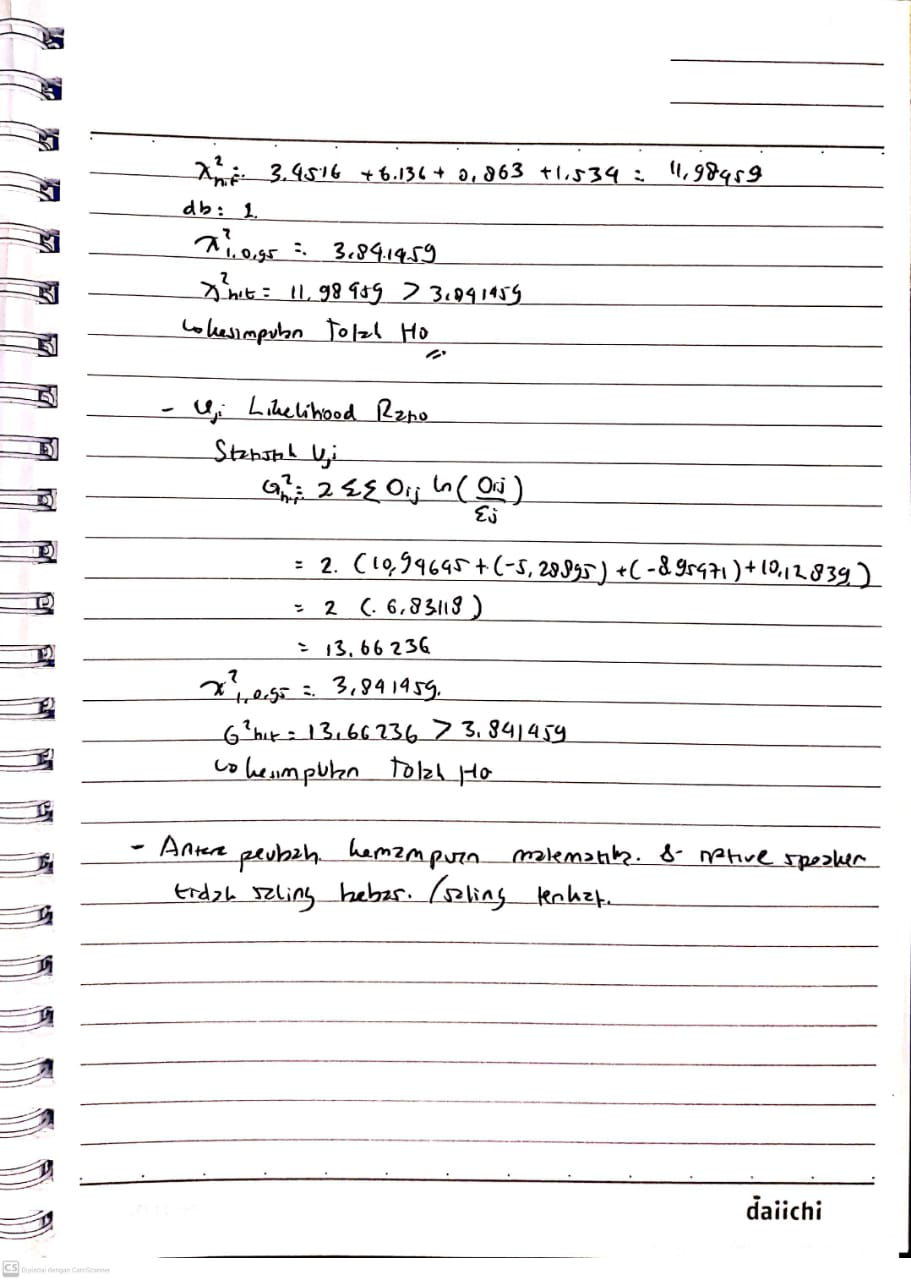 χ²hit = 3,4516 + 6.136 + 0,863 + 1,534 = 11,98459
db = 1
χ²1,0,95 = 3,841459
χ²hit = 11,98459 > 3,841459
↳ kesimpulan Tolak Ho
- Uji Likelihood Ratio
Statistik Uji
G²hit = 2 ΣΣ Oij ln (Oij / Eij)
= 2. (10,94645 + (-5,28895) + (-8.95471) + 10,12839)
= 2 (6,83118)
= 13,66236
χ²1,0.95 = 3,841459.
G²hit = 13,66236 > 3.841459
↳ kesimpulan Tolak Ho
- Antara peubah kemampuan matematika & native speaker
tidak saling bebas. / saling terkait.
daiichi
CS Dipindai dengan CamScanner